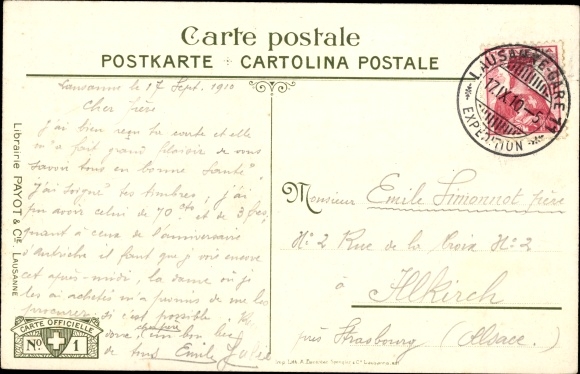 Carte postale
POSTKARTE + CARTOLINA POSTALE
LAUSANNE-GARE
17.IX.10.-5
EXPÉDITION
71
Lausanne le 17 Sept. 1910
Cher frère
J'ai bien reçu ta carte et elle
m'a fait grand plaisir de vous
savoir tous en bonne santé,
J'ai soigné tes timbres; j'ai
pu avoir celui de 70 cts et de 3 frs,
quant à ceux de l'anniversaire
d'Autriche il faut que j'y aille encore
cet après-midi, la dame où je
les ai achetés m'a promis de me les
procurer si c'est possible,
donc un bon
de tous Emile
Monsieur Emile Simonnot père
No 2 Rue de la Croix No 2
à
Altkirch
près Strasbourg (Alsace.)
Librairie PAYOT & Cie LAUSANNE
CARTE OFFICIELLE
No 1
Imp. Lith. A. & Cie Lausanne